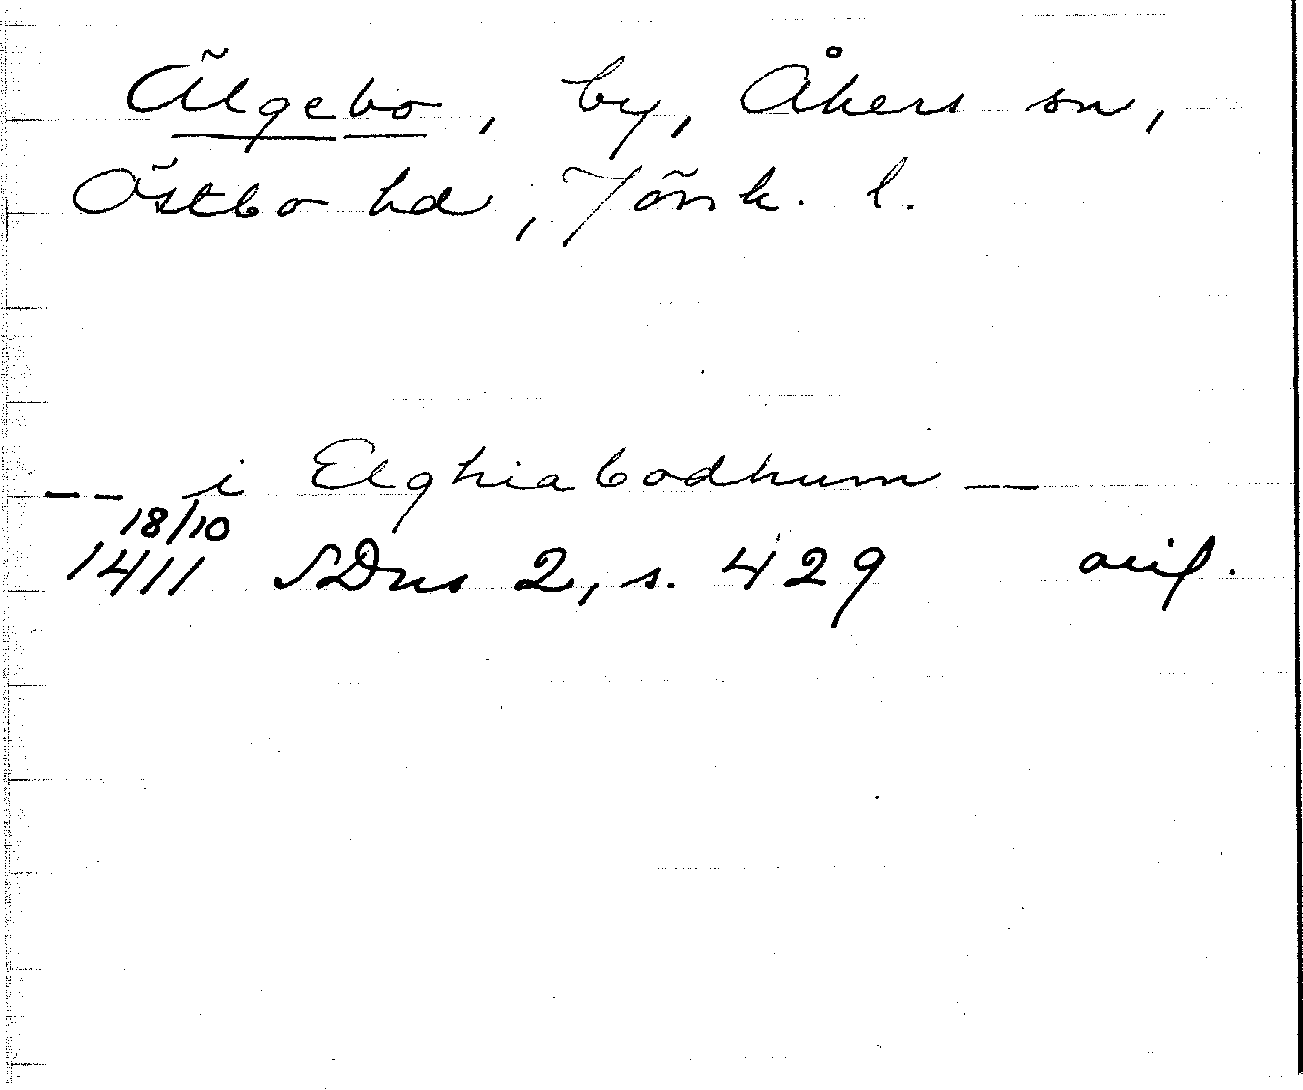 Älgebo, by, Åkers sn,
Östbo hd, Jönk. l.
-- i Elghiabodhum —
18/10
1411 SDns 2, s. 429 avf.